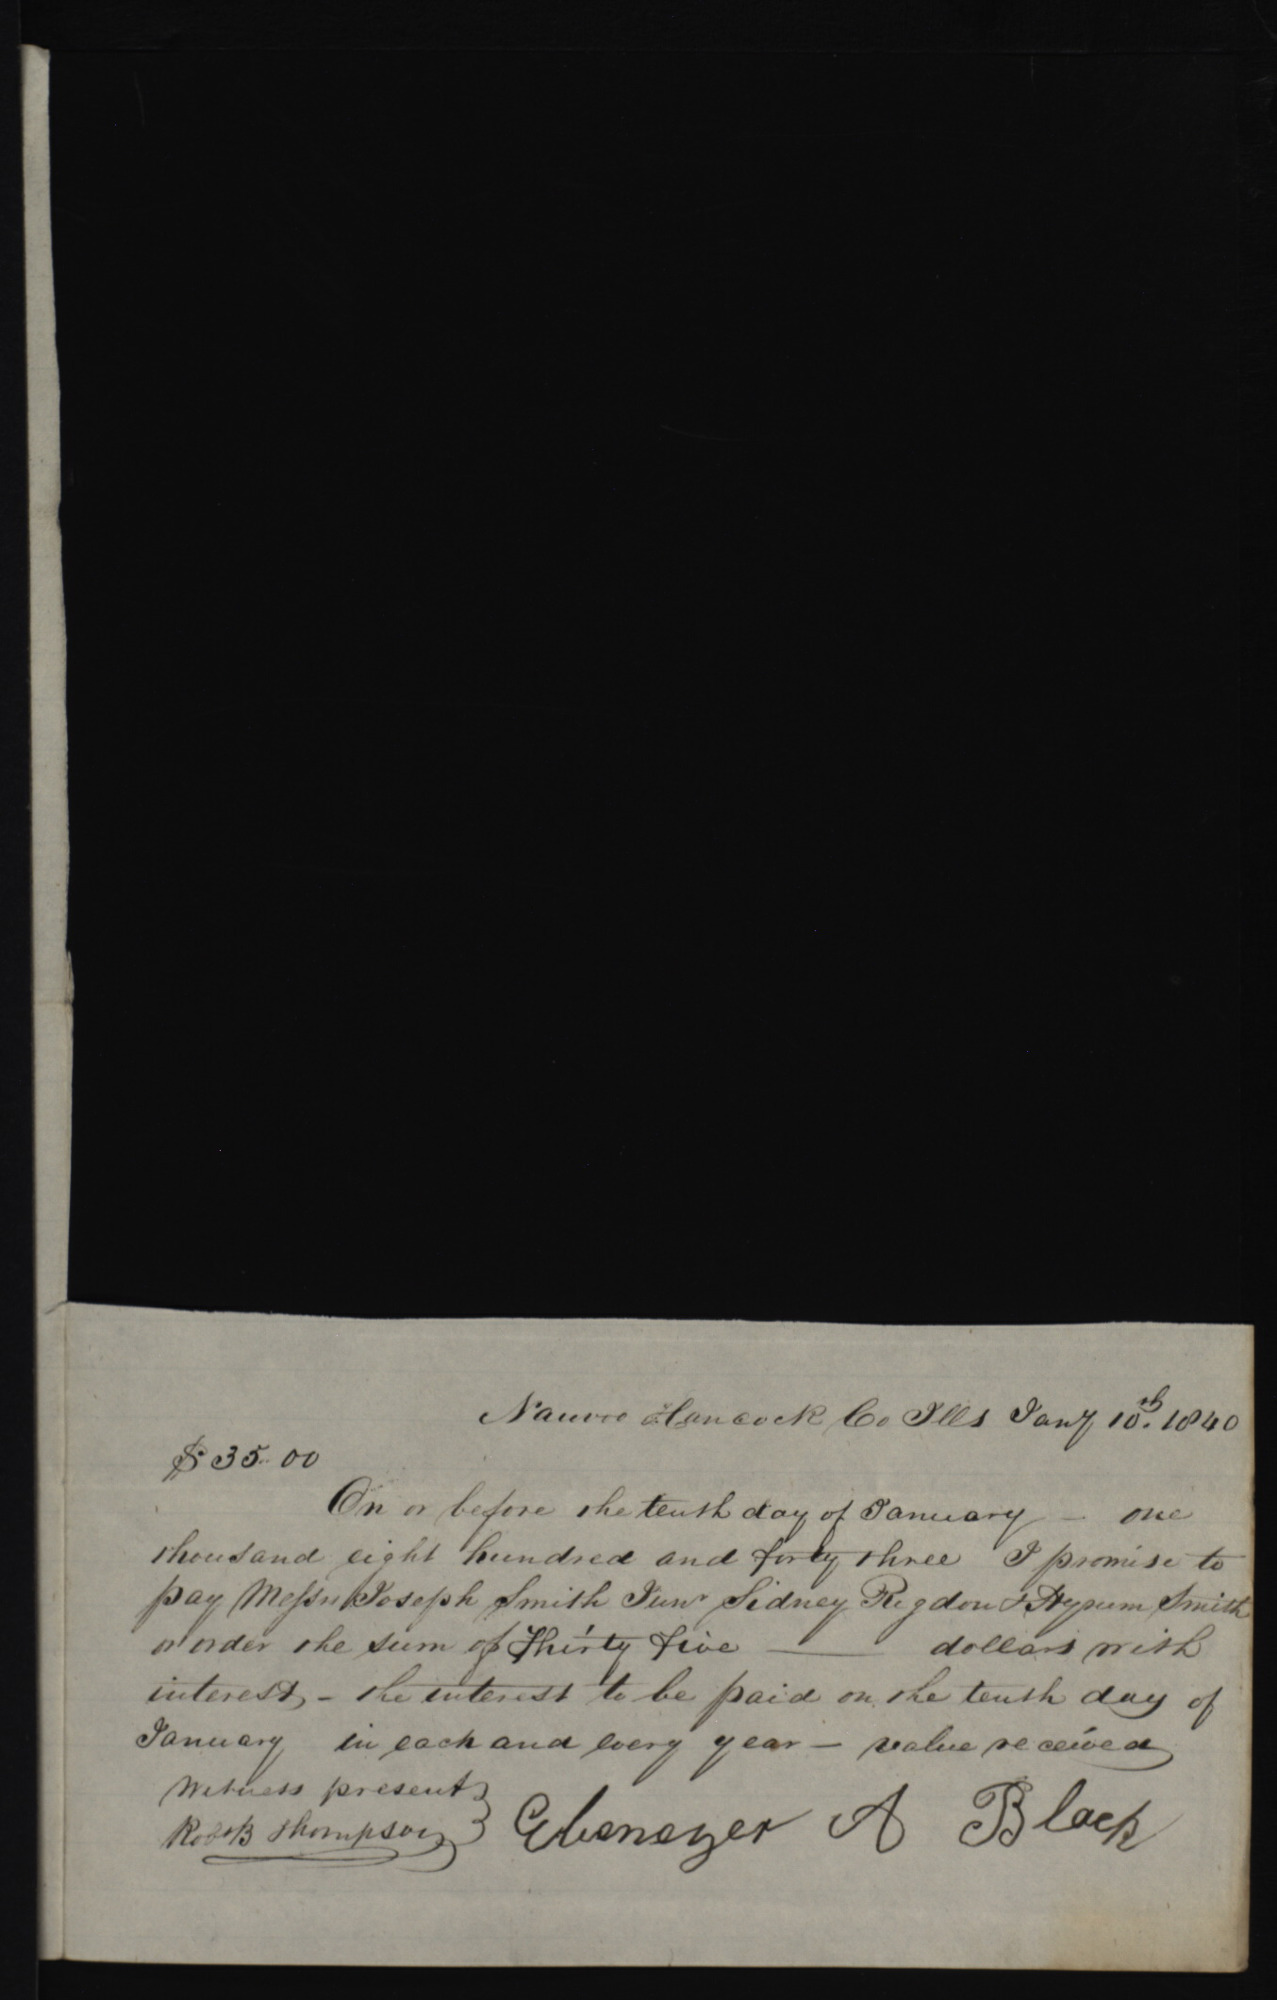 Nauvoo Hancock Co Ills Jany 10th. 1840
$35.00
On or before the tenth day of January – one
thousand eight hundred and forty three I promise to
pay Messrs Joseph Smith Junr Sidney Rigdon & Hyrum Smith
or order the sum of Thirty five —— dollars with
interest, – the interest to be paid on the tenth day of
January in each and every year – value received
Witness present
Robt B Thompson } Ebenezer A Black